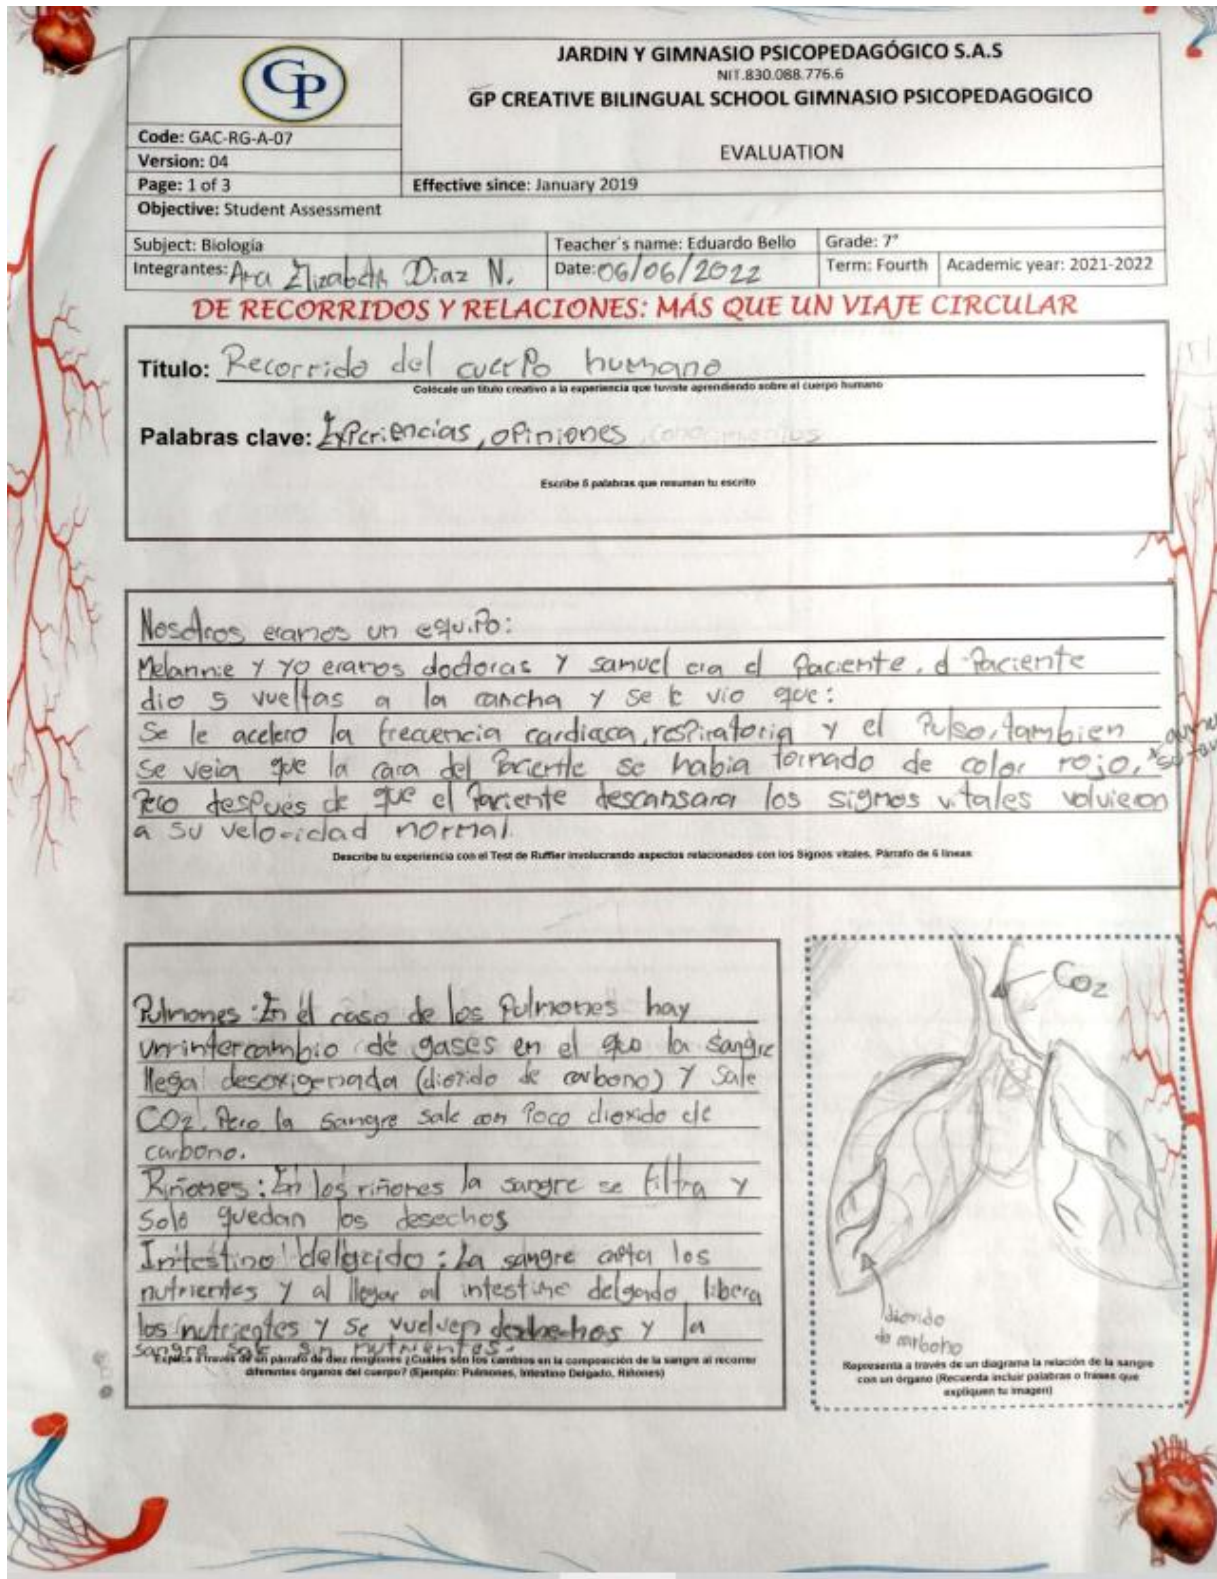 GP
JARDIN Y GIMNASIO PSICOPEDAGÓGICO S.A.S
NIT.830.088.776.6
GP CREATIVE BILINGUAL SCHOOL GIMNASIO PSICOPEDAGOGICO
EVALUATION
Code: GAC-RG-A-07
Version: 04
Page: 1 of 3
Effective since: January 2019
Objective: Student Assessment
Subject: Biología
Teacher's name: Eduardo Bello
Grade: 7°
Integrantes: Ana Elizabeth Diaz N.
Date: 06/06/2022
Term: Fourth
Academic year: 2021-2022
DE RECORRIDOS Y RELACIONES: MÁS QUE UN VIAJE CIRCULAR
Título: Recorrido del cuerpo humano
Colócale un título creativo a la experiencia que tuviste aprendiendo sobre el cuerpo humano
Palabras clave: Experiencias, opiniones, conocimientos
Escribe 5 palabras que resuman tu escrito
Nosotros eramos un equipo:
Melannie y yo eramos doctoras y samuel era el paciente, el paciente
dio 5 vueltas a la cancha y se le vio que:
Se le acelero la frecuencia cardiaca, respiratoria y el Pulso, tambien
se veia que la cara del paciente se habia tornado de color rojo,
Pero después de que el paciente descansara los signos vitales volvieron
a su velocidad normal.
Describe tu experiencia con el Test de Ruffier involucrando aspectos relacionados con los Signos vitales. Párrafo de 6 líneas
Pulmones: En el caso de los Pulmones hay
un intercambio de gases en el que la sangre
llega desoxigenada (dioxido de carbono) y sale
CO2. Pero la sangre sale con poco dioxido de
carbono.
Riñones: En los riñones la sangre se filtra y
solo quedan los desechos
Intestino delgado: La sangre capta los
nutrientes y al llegar al intestino delgado libera
los nutrientes y se vuelven deshechos y la
sangre sale sin nutrientes.
Explica a través de un párrafo de diez renglones ¿Cuáles son los cambios en la composición de la sangre al recorrer
diferentes órganos del cuerpo? (Ejemplo: Pulmones, Intestino Delgado, Riñones)
CO2
dioxido
de carbono
Representa a través de un diagrama la relación de la sangre
con un órgano (Recuerda incluir palabras o frases que
expliquen tu imagen)